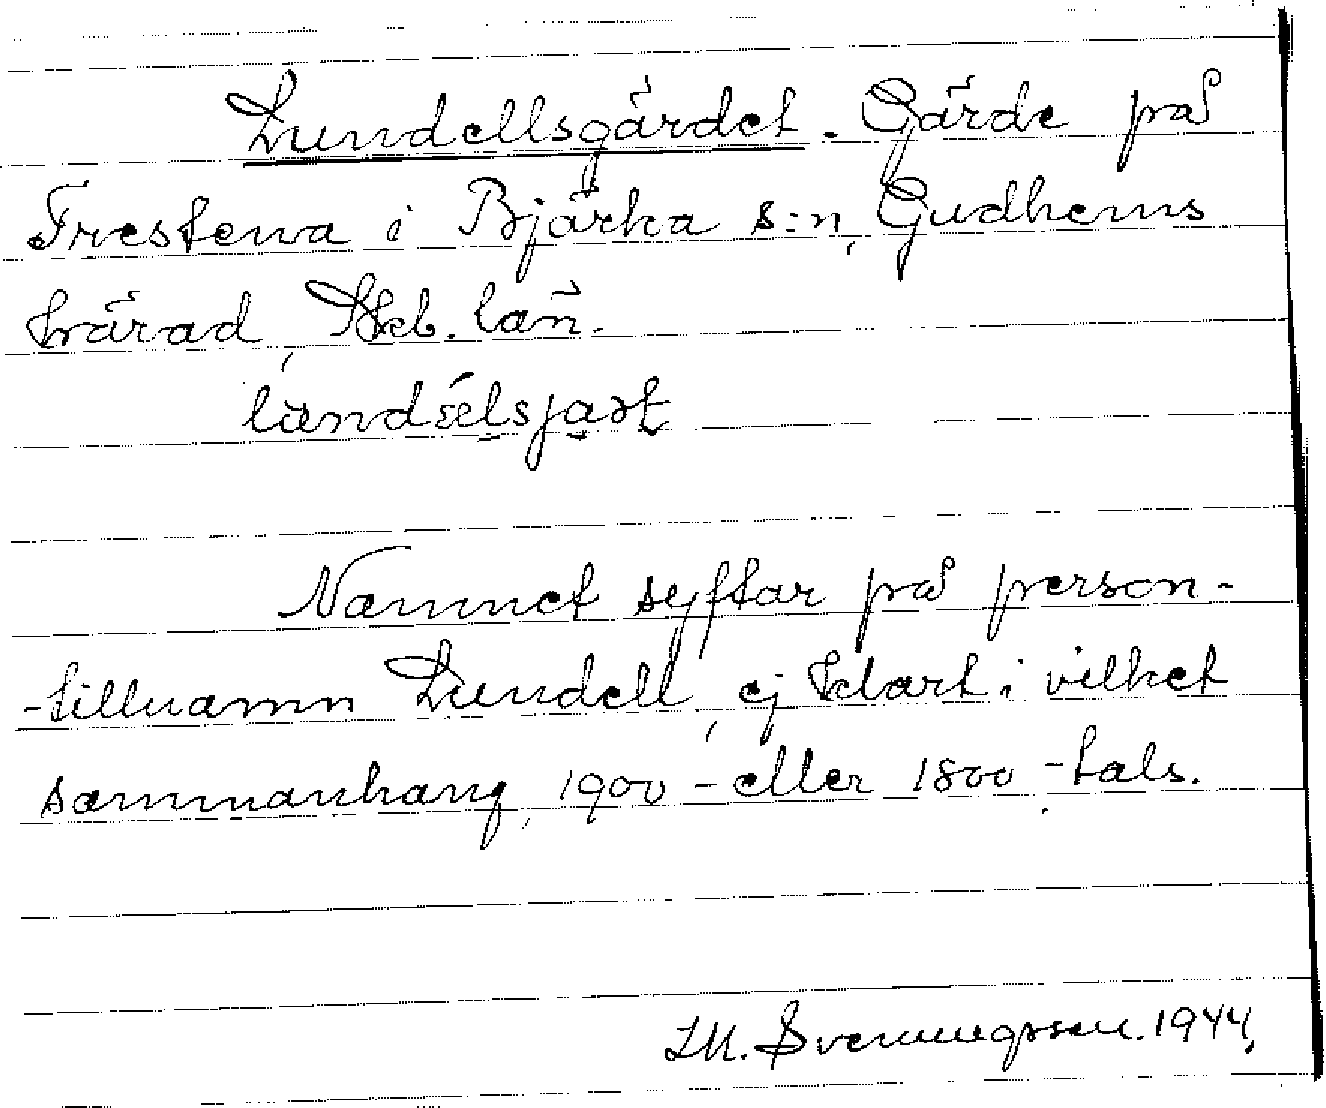 Lundellsgärdet. Gärde på
Frestena i Bjärka s:n, Gudhems
härad, Skb. län.
Namnet syftar på person-
-tillnamn Lundell, ej klart i vilket
sammanhang, 1900 - eller 1800 - tals.
Svenningsson. 1944.